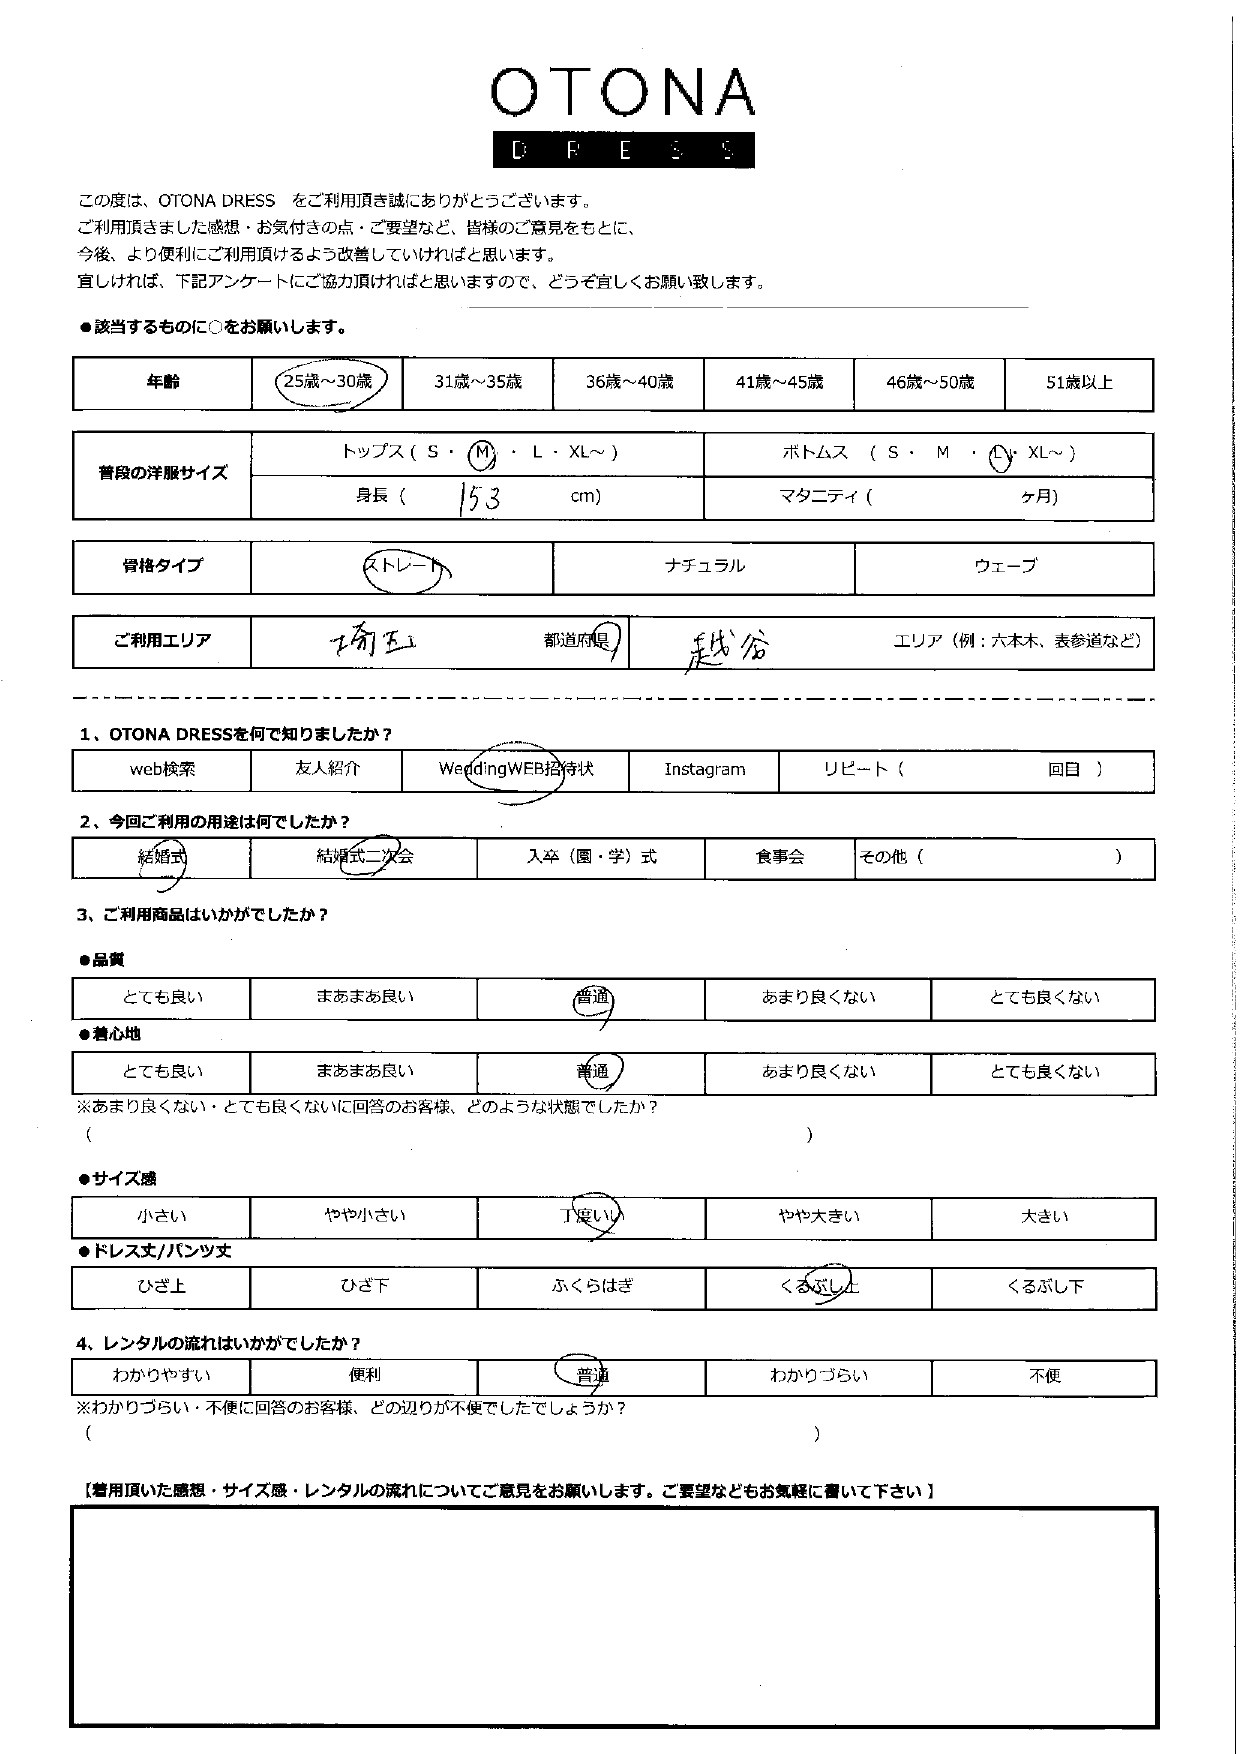 OTONA
DRESS
この度は、OTONA DRESS　をご利用頂き誠にありがとうございます。
ご利用頂きました感想・お気付きの点・ご要望など、皆様のご意見をもとに、
今後、より便利にご利用頂けるよう改善していければと思います。
宜しければ、下記アンケートにご協力頂ければと思いますので、どうぞ宜しくお願い致します。
●該当するものに○をお願いします。
年齢 25歳～30歳 31歳～35歳 36歳～40歳 41歳～45歳 46歳～50歳 51歳以上
普段の洋服サイズ トップス ( S ・ M ・ L ・ XL～ ) ボトムス ( S ・ M ・ L ・ XL～ )
身長 ( 153 cm) マタニティ ( ヶ月)
骨格タイプ ストレート ナチュラル ウェーブ
ご利用エリア 埼玉 都道府県 越谷 エリア（例：六本木、表参道など）
1、OTONA DRESSを何で知りましたか？
web検索 友人紹介 WeddingWEB招待状 Instagram リピート ( 回目 )
2、今回ご利用の用途は何でしたか？
結婚式 結婚式二次会 入卒（園・学）式 食事会 その他 ( )
3、ご利用商品はいかがでしたか？
●品質
とても良い まあまあ良い 普通 あまり良くない とても良くない
●着心地
とても良い まあまあ良い 普通 あまり良くない とても良くない
※あまり良くない・とても良くないに回答のお客様、どのような状態でしたか？
( )
●サイズ感
小さい やや小さい 丁度いい やや大きい 大きい
●ドレス丈/パンツ丈
ひざ上 ひざ下 ふくらはぎ くるぶし上 くるぶし下
4、レンタルの流れはいかがでしたか？
わかりやすい 便利 普通 わかりづらい 不便
※わかりづらい・不便に回答のお客様、どの辺りが不便でしたでしょうか？
( )
【着用頂いた感想・サイズ感・レンタルの流れについてご意見をお願いします。ご要望などもお気軽に書いて下さい】